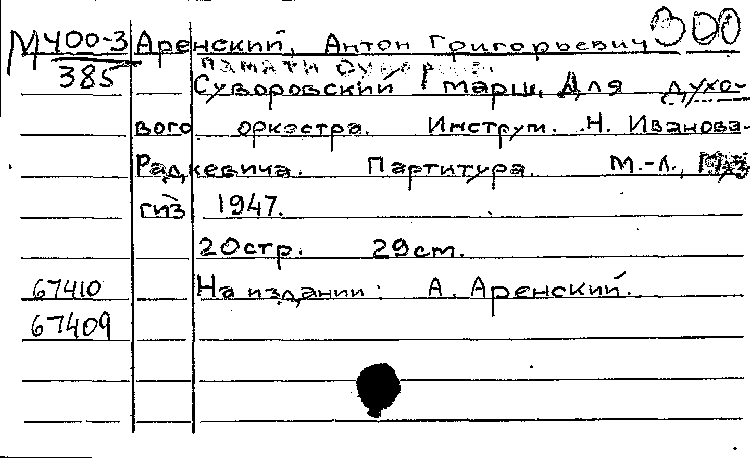 М 400-3 Аренский, Антон Григорьевич 300
385 Памяти Суворова
Суворовский марш. Для духо-
вого оркестра. Инструм. Н. Иванова-
Радкевича. Партитура. М.-Л., Муз
гиз 1947.
20стр. 29см.
67410 На издании: А. Аренский.
67409